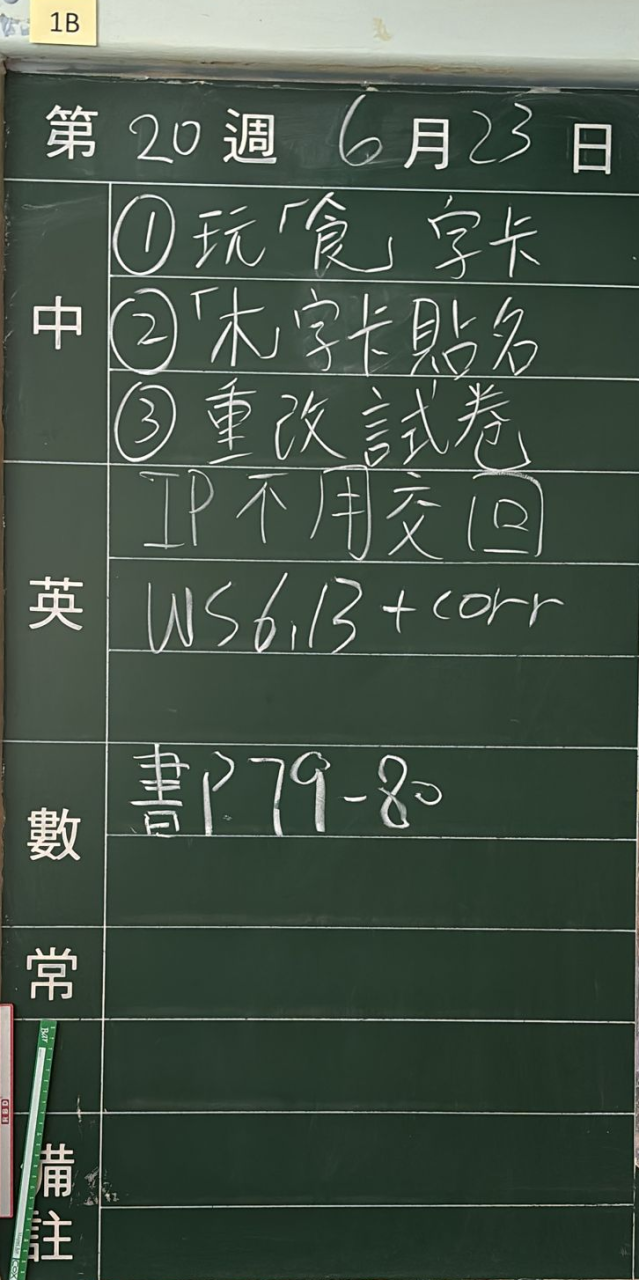 1B
第 20 週 6 月 23 日
中
① 玩「食」字卡
②「木」字卡貼名
③ 重改試卷
英
IP 不用交回
WS6,13 + corr
數
書P.79-80
常
備註